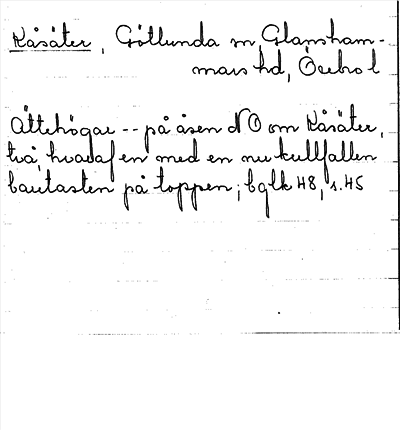 Kåsäter, Götlunda sn, Glansham-
mars hd, Örebro l
Ättehögar -- på åsen NO om Kåsäter,
två, hvaraf en med en nu kullfallen
bautasten på toppen; bglk 48, s. 45